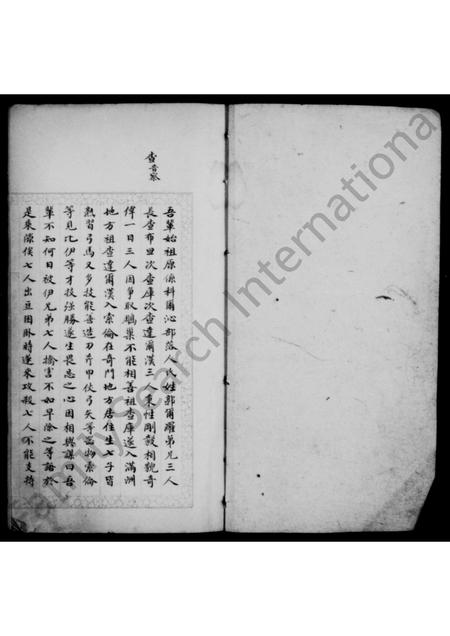 查音拏
吾輩始祖原係科爾沁部落人氏姓郭爾羅弟兄三人
長查布旦次查庫次查達爾漢三人秉性剛毅相貌奇
偉一日三人因爭取鵰巢不能相善祖查庫遂入滿洲
地方祖查達爾漢入索倫在奇門地方居住生七子皆
熟習弓馬又多技能善造刀斧甲伏弓矢等器物索倫
等見比伊等才技強勝遂生畏忌之心因相與謀曰吾
輩不知何日被伊兄弟七人擒害不如早除之等語於
是乘隙俟七人出豆困臥時遂來攻殺七人不能支持
FamilySearch International